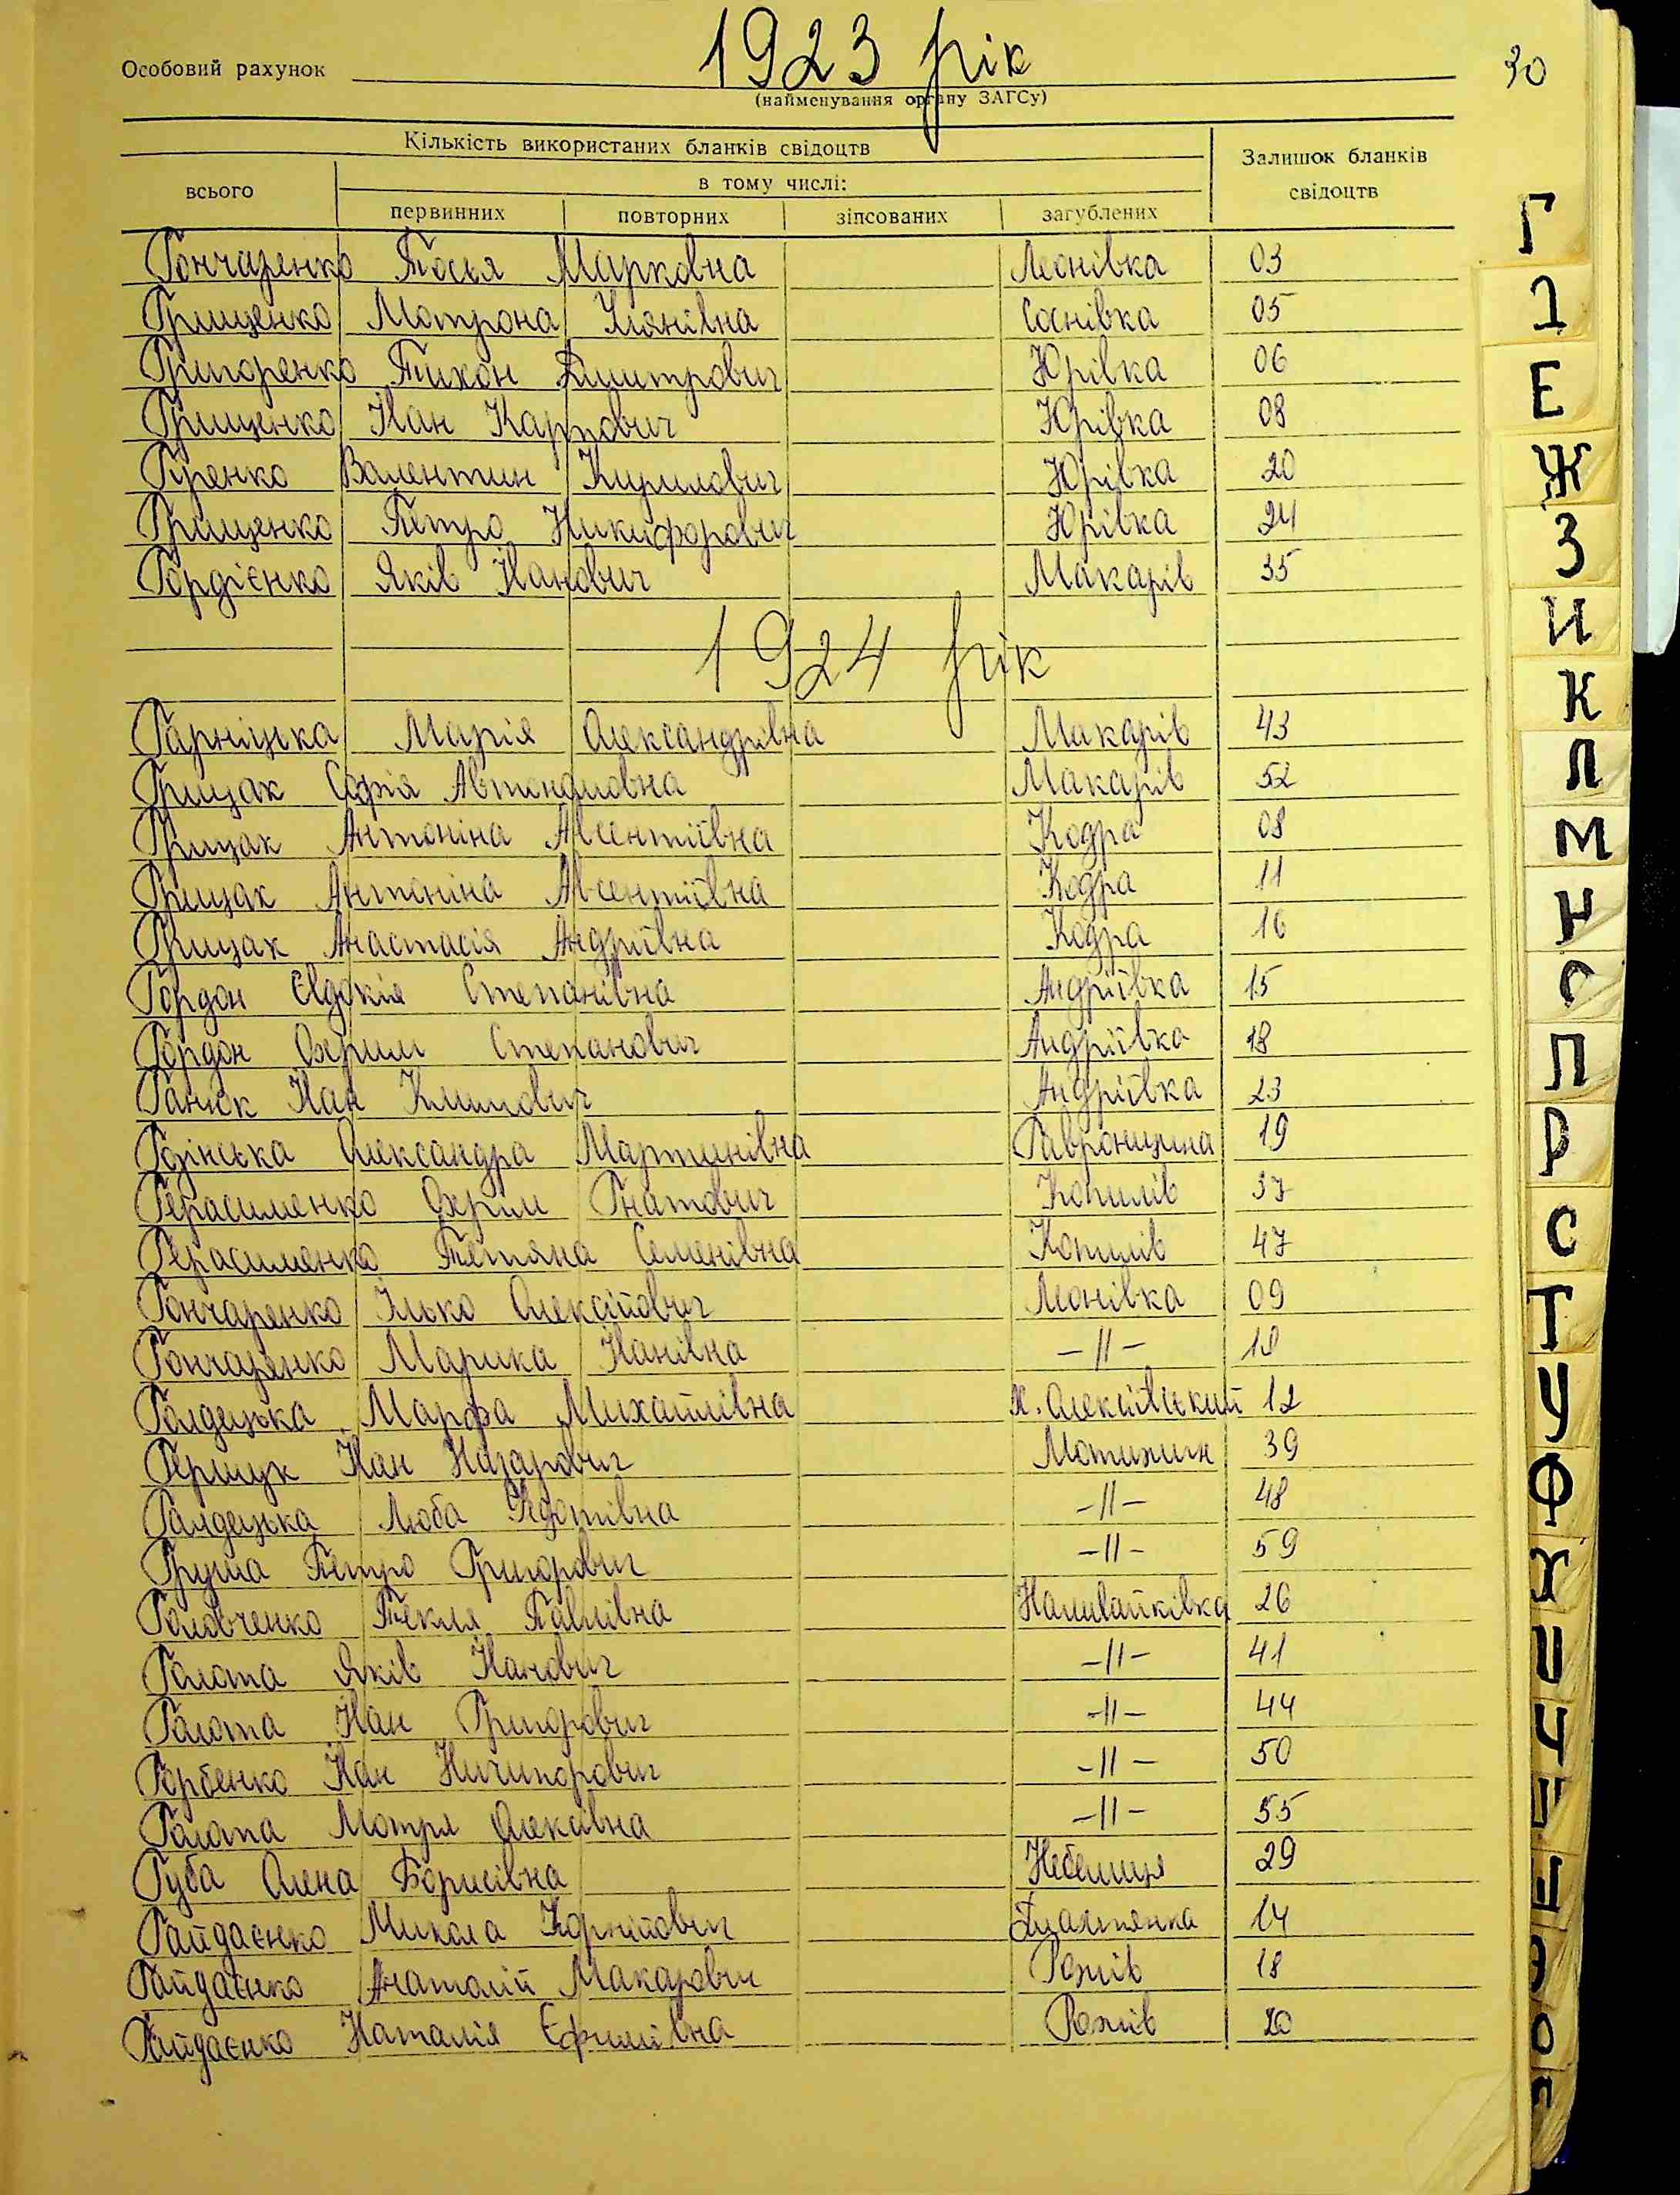 1923 рік
30
Особовий рахунок
(найменування органу ЗАГСу)
Кількість використаних бланків свідоцтв
Залишок бланків свідоцтв
всього
в тому числі:
первинних повторних зіпсованих загублених
Гончаренко Тосья Марковна Леонівка 03
Грищенко Мотрона Іванівна Соснівка 05
Григоренко Тихон Дмитрович Юрівка 06
Грищенко Іван Карпович Юрівка 08
Гуренко Валентин Кирилович Юрівка 20
Грищенко Петро Никифорович Юрівка 24
Гордієнко Яків Іванович Макарів 35
1924 рік
Гарніцька Марія Олександрівна Макарів 43
Грицак Софія Автономовна Макарів 52
Грицак Антоніна Авсентіївна Кодра 08
Грицак Антоніна Авсентіївна Кодра 11
Грицак Анастасія Андріївна Кодра 16
Гордон Євдокія Степанівна Андріївка 15
Гордон Охрим Степанович Андріївка 18
Ганюк Іван Климович Андріївка 23
Олександра Мартинівна Гавронщина 19
Герасименко Охрим Гнатович Копилів 37
Герасименко Тетяна Семенівна Копилів 47
Гончаренко Ілько Олексійович Леонівка 09
Гончаренко Марика Іванівна –||– 18
Галдецька Марфа Михайлівна х. Олексіївський 12
Гершук Іван Назарович Мотижин 39
Галдецька Люба Федотівна –||– 48
Груша Петро Григорович –||– 59
Головченко Текля Павлівна Наливайківка 26
Галата Яків Іванович –||– 41
Галата Іван Григорович –||– 44
Горбенко Іван Ничипорович –||– 50
Галата Мотря Олексівна –||– 55
Губа Олена Борисівна Небелиця 29
Гайдаєнко Микола Корнійович 14
Гайдаєнко Анатолій Макарович Рожів 18
Гайдаєнко Наталія Єфимівна Рожів 20
Г
Е
Ж
З
И
К
Л
М
Н
О
П
Р
С
Т
У
Ф
Х
Ц
Ч